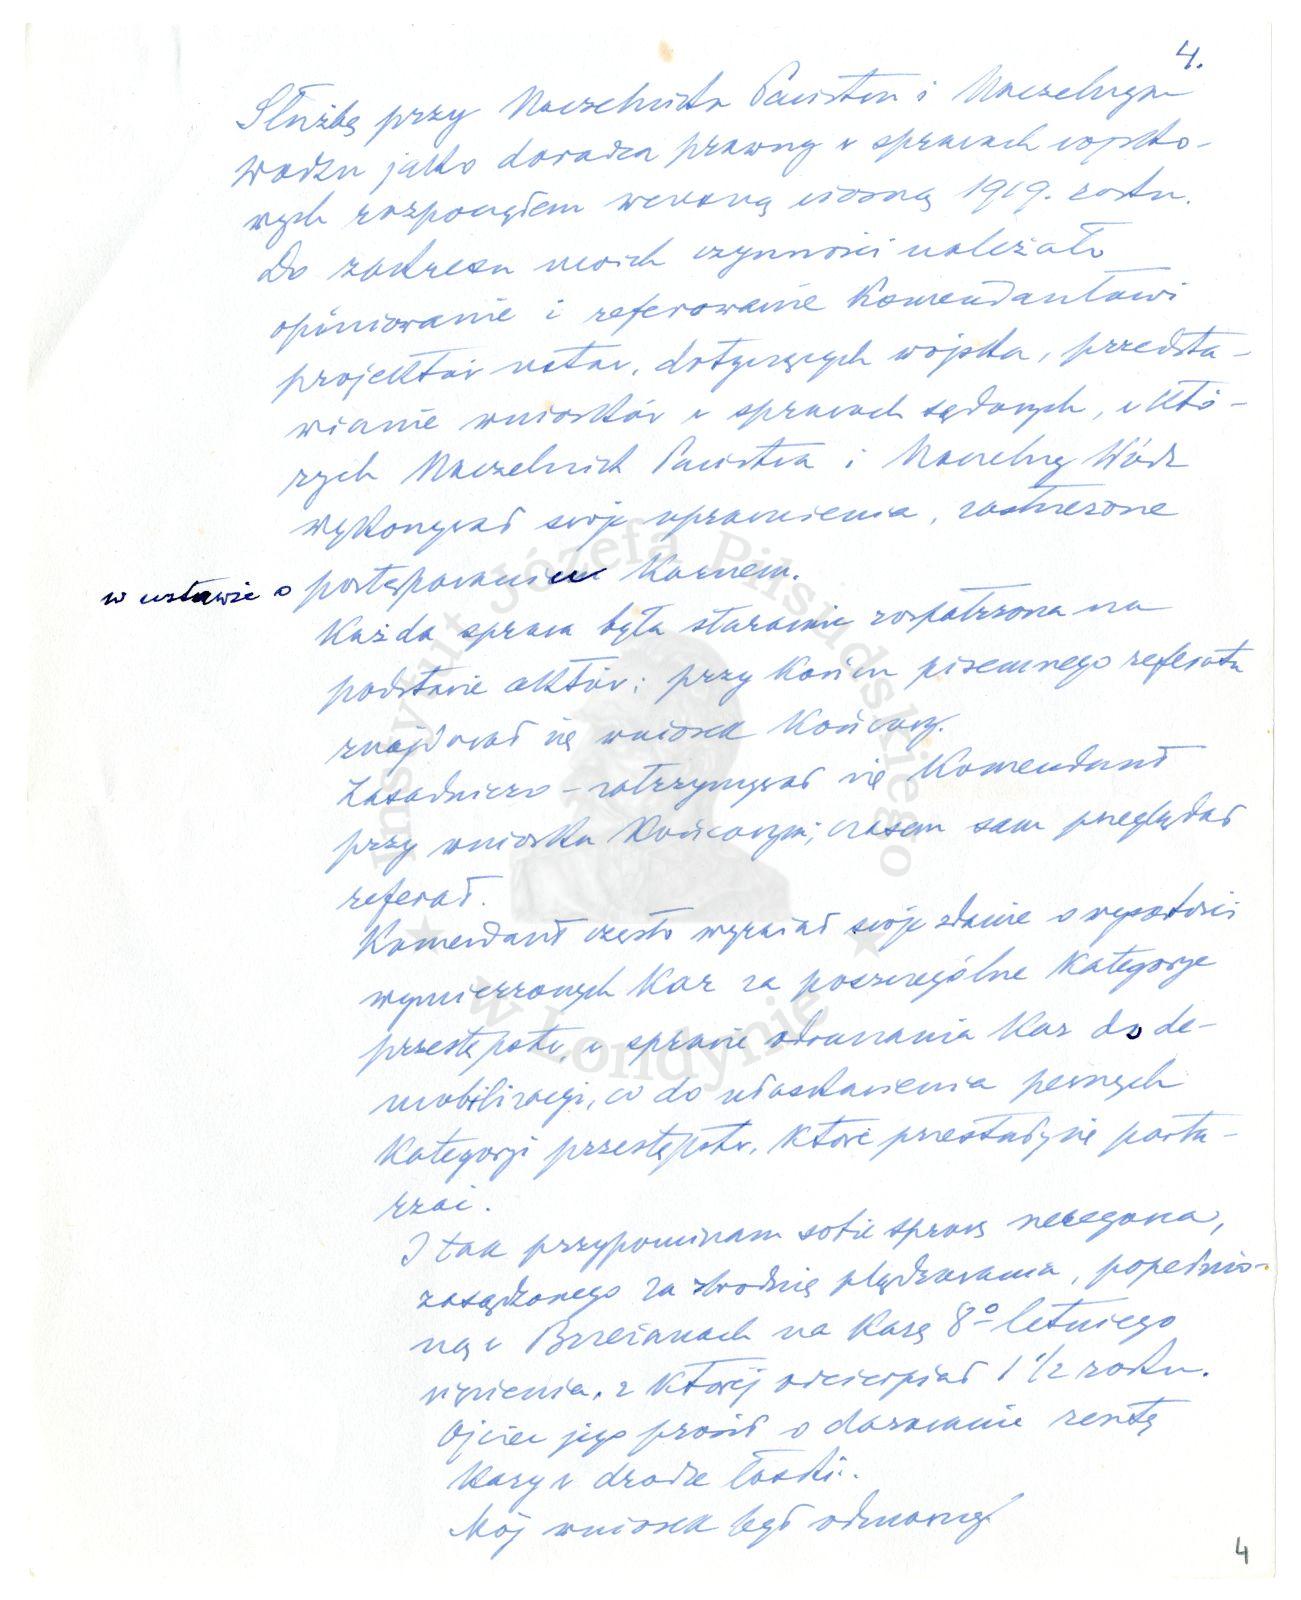 4.
Służbę przy Naczelniku Państwa i Naczelnym
Wodzu jako doradca prawny w sprawach wojsko-
wych rozpocząłem wczesną wiosną 1919. roku.
Do zakresu moich czynności należało
opiniowanie i referowanie Komendantowi
projektów ustaw, dotyczących wojska, przedsta-
wianie wniosków w sprawach sądowych, w któ-
rych Naczelnik Państwa i Naczelny Wódz
wykonywał swoje uprawnienia, zastrzeżone
w ustawie o postępowaniu karnem.
Każda sprawa była starannie rozpatrzona na
podstawie aktów; przy końcu pisemnego referatu
znajdował się wniosek końcowy.
Zasadniczo - zatrzymywał się Komendant
przy wniosku końcowym; czasem sam przeglądał
referat.
Komendant często wyrażał swoje zdanie o wysokości
wymierzonych kar za poszczególne kategorje
przestępstw, w sprawie odraczania kar do de-
mobilizacji, co do ułaskawienia pewnych
kategorji przestępstw, które przestały się powta-
rzać.
I tak przypominam sobie sprawę szeregowca,
zasądzonego za zbrodnię plądrowania, popełnio-
ną w Brzeżanach na karę 8º letniego
więzienia, z której odcierpiał 1 1/2 roku.
Ojciec jego prosił o darowanie reszty
kary w drodze łaski.
Mój wniosek był odmowny.
4
Instytut Józefa Piłsudskiego
w Londynie